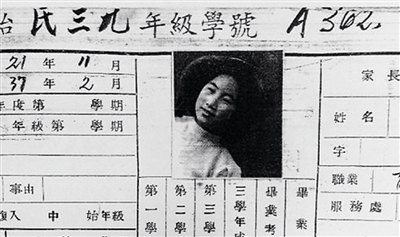 治 民三九 年級學號 A 302
21 年 11 月
37 年 2 月
年度第 學期
年級第 學期
事由
入 中 始年級
第一學
第二學
第三學
三學年成
畢業考
畢業
家長
姓名
字
職業
服務處